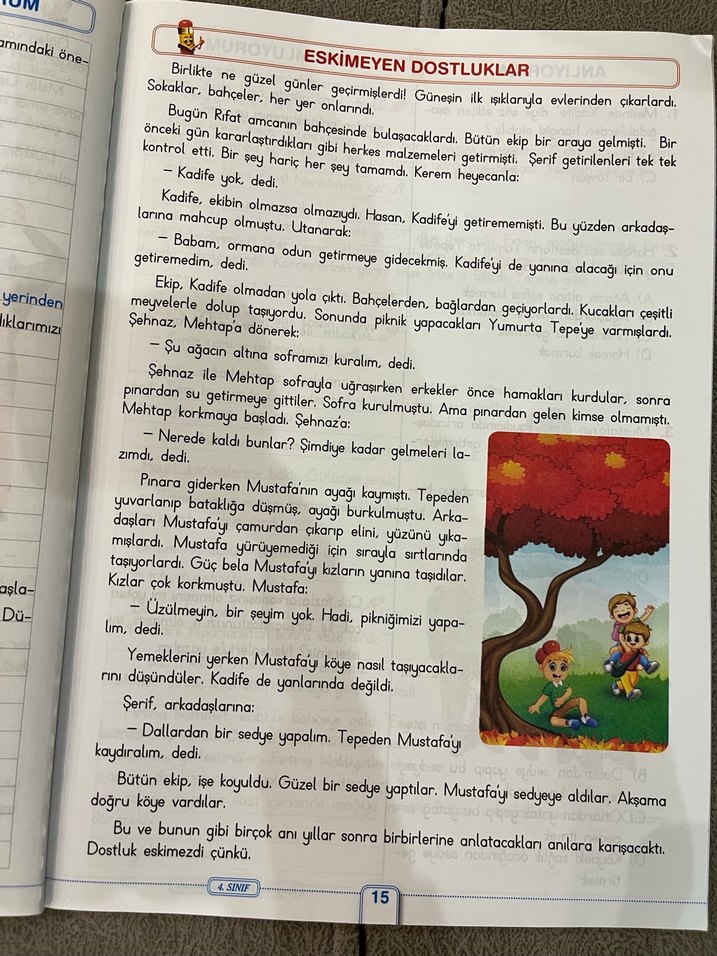 UM
amındaki öne-
yerinden
lıklarımızı
aşla-
Dü-
ESKİMEYEN DOSTLUKLAR
Birlikte ne güzel günler geçirmişlerdi! Güneşin ilk ışıklarıyla evlerinden çıkarlardı.
Sokaklar, bahçeler, her yer onlarındı.
Bugün Rıfat amcanın bahçesinde bulaşacaklardı. Bütün ekip bir araya gelmişti. Bir
önceki gün kararlaştırdıkları gibi herkes malzemeleri getirmişti. Şerif getirilenleri tek tek
kontrol etti. Bir şey hariç her şey tamamdı. Kerem heyecanla:
– Kadife yok, dedi.
Kadife, ekibin olmazsa olmazıydı. Hasan, Kadife'yi getirememişti. Bu yüzden arkadaş-
larına mahcup olmuştu. Utanarak:
– Babam, ormana odun getirmeye gidecekmiş. Kadife'yi de yanına alacağı için onu
getiremedim, dedi.
Ekip, Kadife olmadan yola çıktı. Bahçelerden, bağlardan geçiyorlardı. Kucakları çeşitli
meyvelerle dolup taşıyordu. Sonunda piknik yapacakları Yumurta Tepe'ye varmışlardı.
Şehnaz, Mehtap'a dönerek:
– Şu ağacın altına soframızı kuralım, dedi.
Şehnaz ile Mehtap sofrayla uğraşırken erkekler önce hamakları kurdular, sonra
pınardan su getirmeye gittiler. Sofra kurulmuştu. Ama pınardan gelen kimse olmamıştı.
Mehtap korkmaya başladı. Şehnaz'a:
– Nerede kaldı bunlar? Şimdiye kadar gelmeleri la-
zımdı, dedi.
Pınara giderken Mustafa'nın ayağı kaymıştı. Tepeden
yuvarlanıp bataklığa düşmüş, ayağı burkulmuştu. Arka-
daşları Mustafa'yı çamurdan çıkarıp elini, yüzünü yıka-
mışlardı. Mustafa yürüyemediği için sırayla sırtlarında
taşıyorlardı. Güç bela Mustafa'yı kızların yanına taşıdılar.
Kızlar çok korkmuştu. Mustafa:
– Üzülmeyin, bir şeyim yok. Hadi, pikniğimizi yapa-
lım, dedi.
Yemeklerini yerken Mustafa'yı köye nasıl taşıyacakla-
rını düşündüler. Kadife de yanlarında değildi.
Şerif, arkadaşlarına:
– Dallardan bir sedye yapalım. Tepeden Mustafa'yı
kaydıralım, dedi.
Bütün ekip, işe koyuldu. Güzel bir sedye yaptılar. Mustafa'yı sedyeye aldılar. Akşama
doğru köye vardılar.
Bu ve bunun gibi birçok anı yıllar sonra birbirlerine anlatacakları anılara karışacaktı.
Dostluk eskimezdi çünkü.
4. SINIF
15